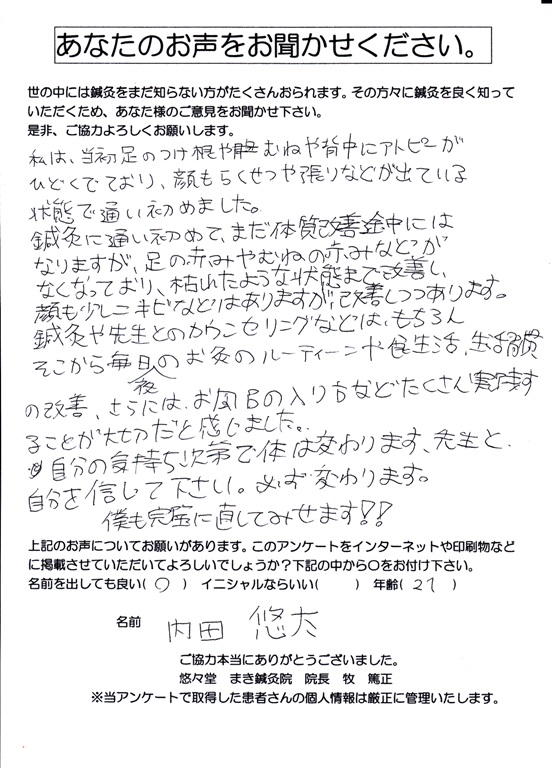 あなたのお声をお聞かせください。
世の中には鍼灸をまだ知らない方がたくさんおられます。その方々に鍼灸を良く知って
いただくため、あなた様のご意見をお聞かせ下さい。
是非、ご協力よろしくお願いします。
私は、当初足のつけ根や むねや背中にアトピーが
ひどくでており、顔もらくせつや張りなどが出ている
状態で通い初めました。
鍼灸に通い初めて、まだ体質改善途中には
なりますが、足の赤みやむねの赤みなどが
なくなっており、枯れたような状態まで改善し、
顔も少しニキビなどはありますが、改善しつつあります。
鍼灸や先生とのカウンセリングなどは、もちろん
そこから毎日のお灸のルーティーンや食生活、生活習慣
後
の改善、さらには、お風呂の入り方などたくさん実践す
ることが大切だと感じました。
自分の気持ち次第で体は変わります、先生と、
自分を信じて下さい。必ず変わります。
僕も完璧に直してみせます!!
上記のお声についてお願いがあります。このアンケートをインターネットや印刷物など
に掲載させていただいてよろしいでしょうか?下記の中から○をお付け下さい。
名前を出しても良い( ○ ) イニシャルならいい( ) 年齢( 27 )
名前 内田 悠太
ご協力本当にありがとうございました。
悠々堂 まき鍼灸院 院長 牧 篤正
※当アンケートで取得した患者さんの個人情報は厳正に管理いたします。